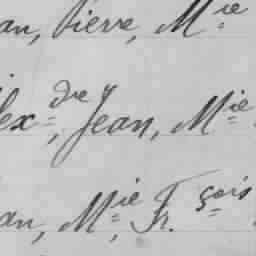 an, Pierre, M.ie
lex=dre, Jean, M=ie
an, M=ie, Fr. çois